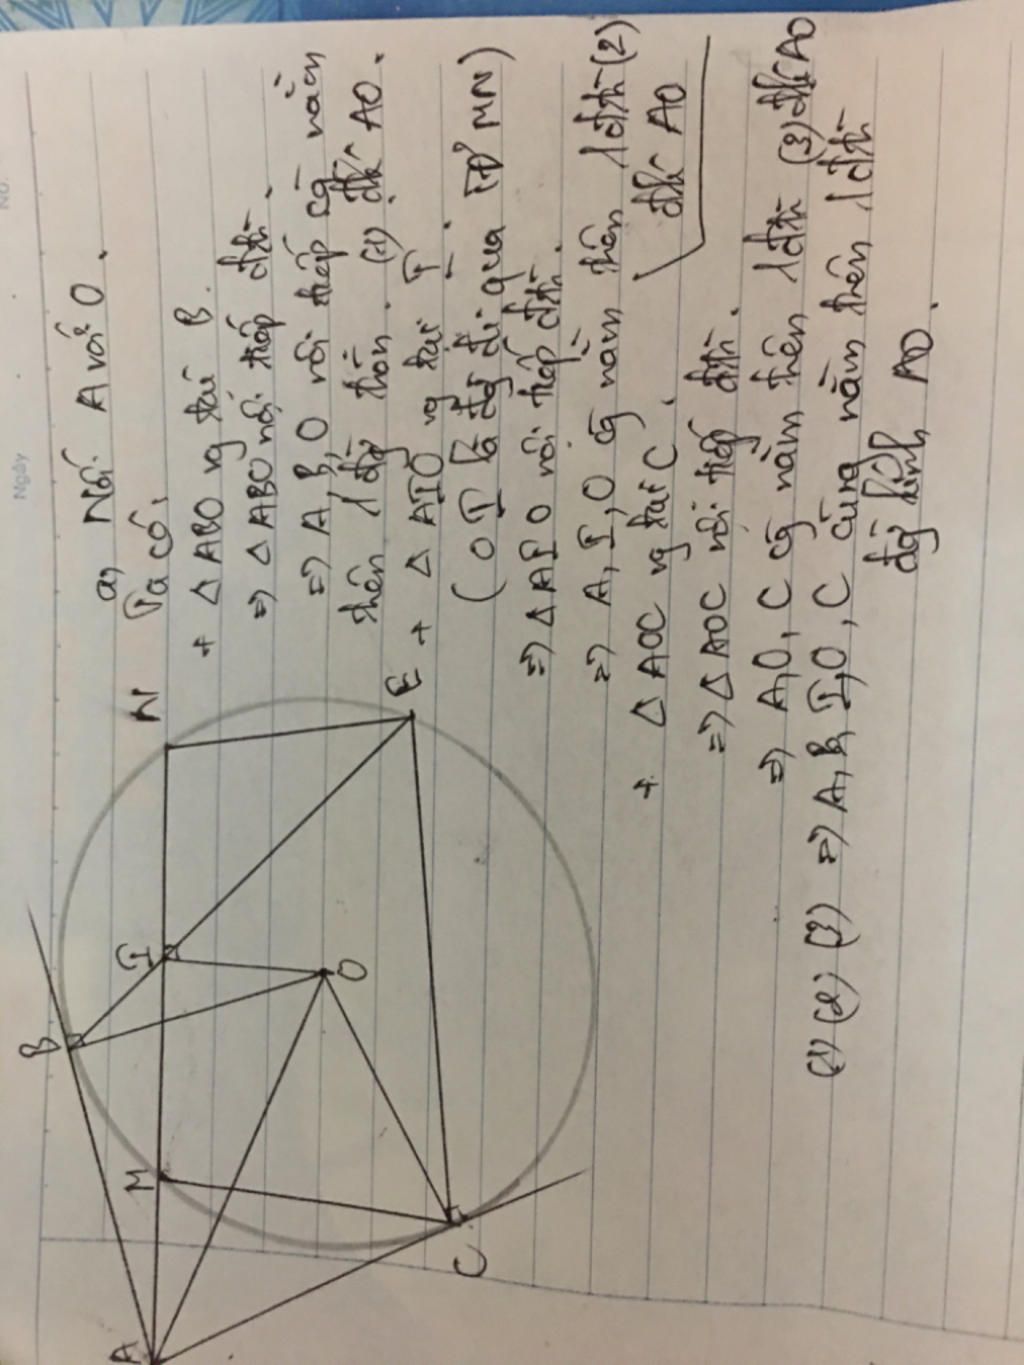 No.
Ngày
a, Nối A với O.
Ta có,
+ Δ ABO vg tại B.
⇒ Δ ABO nội tiếp đtr.
⇒ A, B, O nội tiếp cg nằm
trên 1 đg tròn. (1) đk AO.
+ Δ AIO vg tại I.
( OI là đg đi qua TĐ' MN)
⇒ Δ AIO nội tiếp đtr.
⇒ A, I, O cg nằm trên 1 đtr (2)
đk AO
+ Δ AOC vg tại C.
⇒ Δ AOC nội tiếp đtr.
⇒ A, O, C cg nằm trên 1 đtr (3) đk AO
(1) (2) (3) ⇒ A, B, I, O, C cùng nằm trên 1 đtr
đg kính AO.
A
M
B
I
N
O
C
E